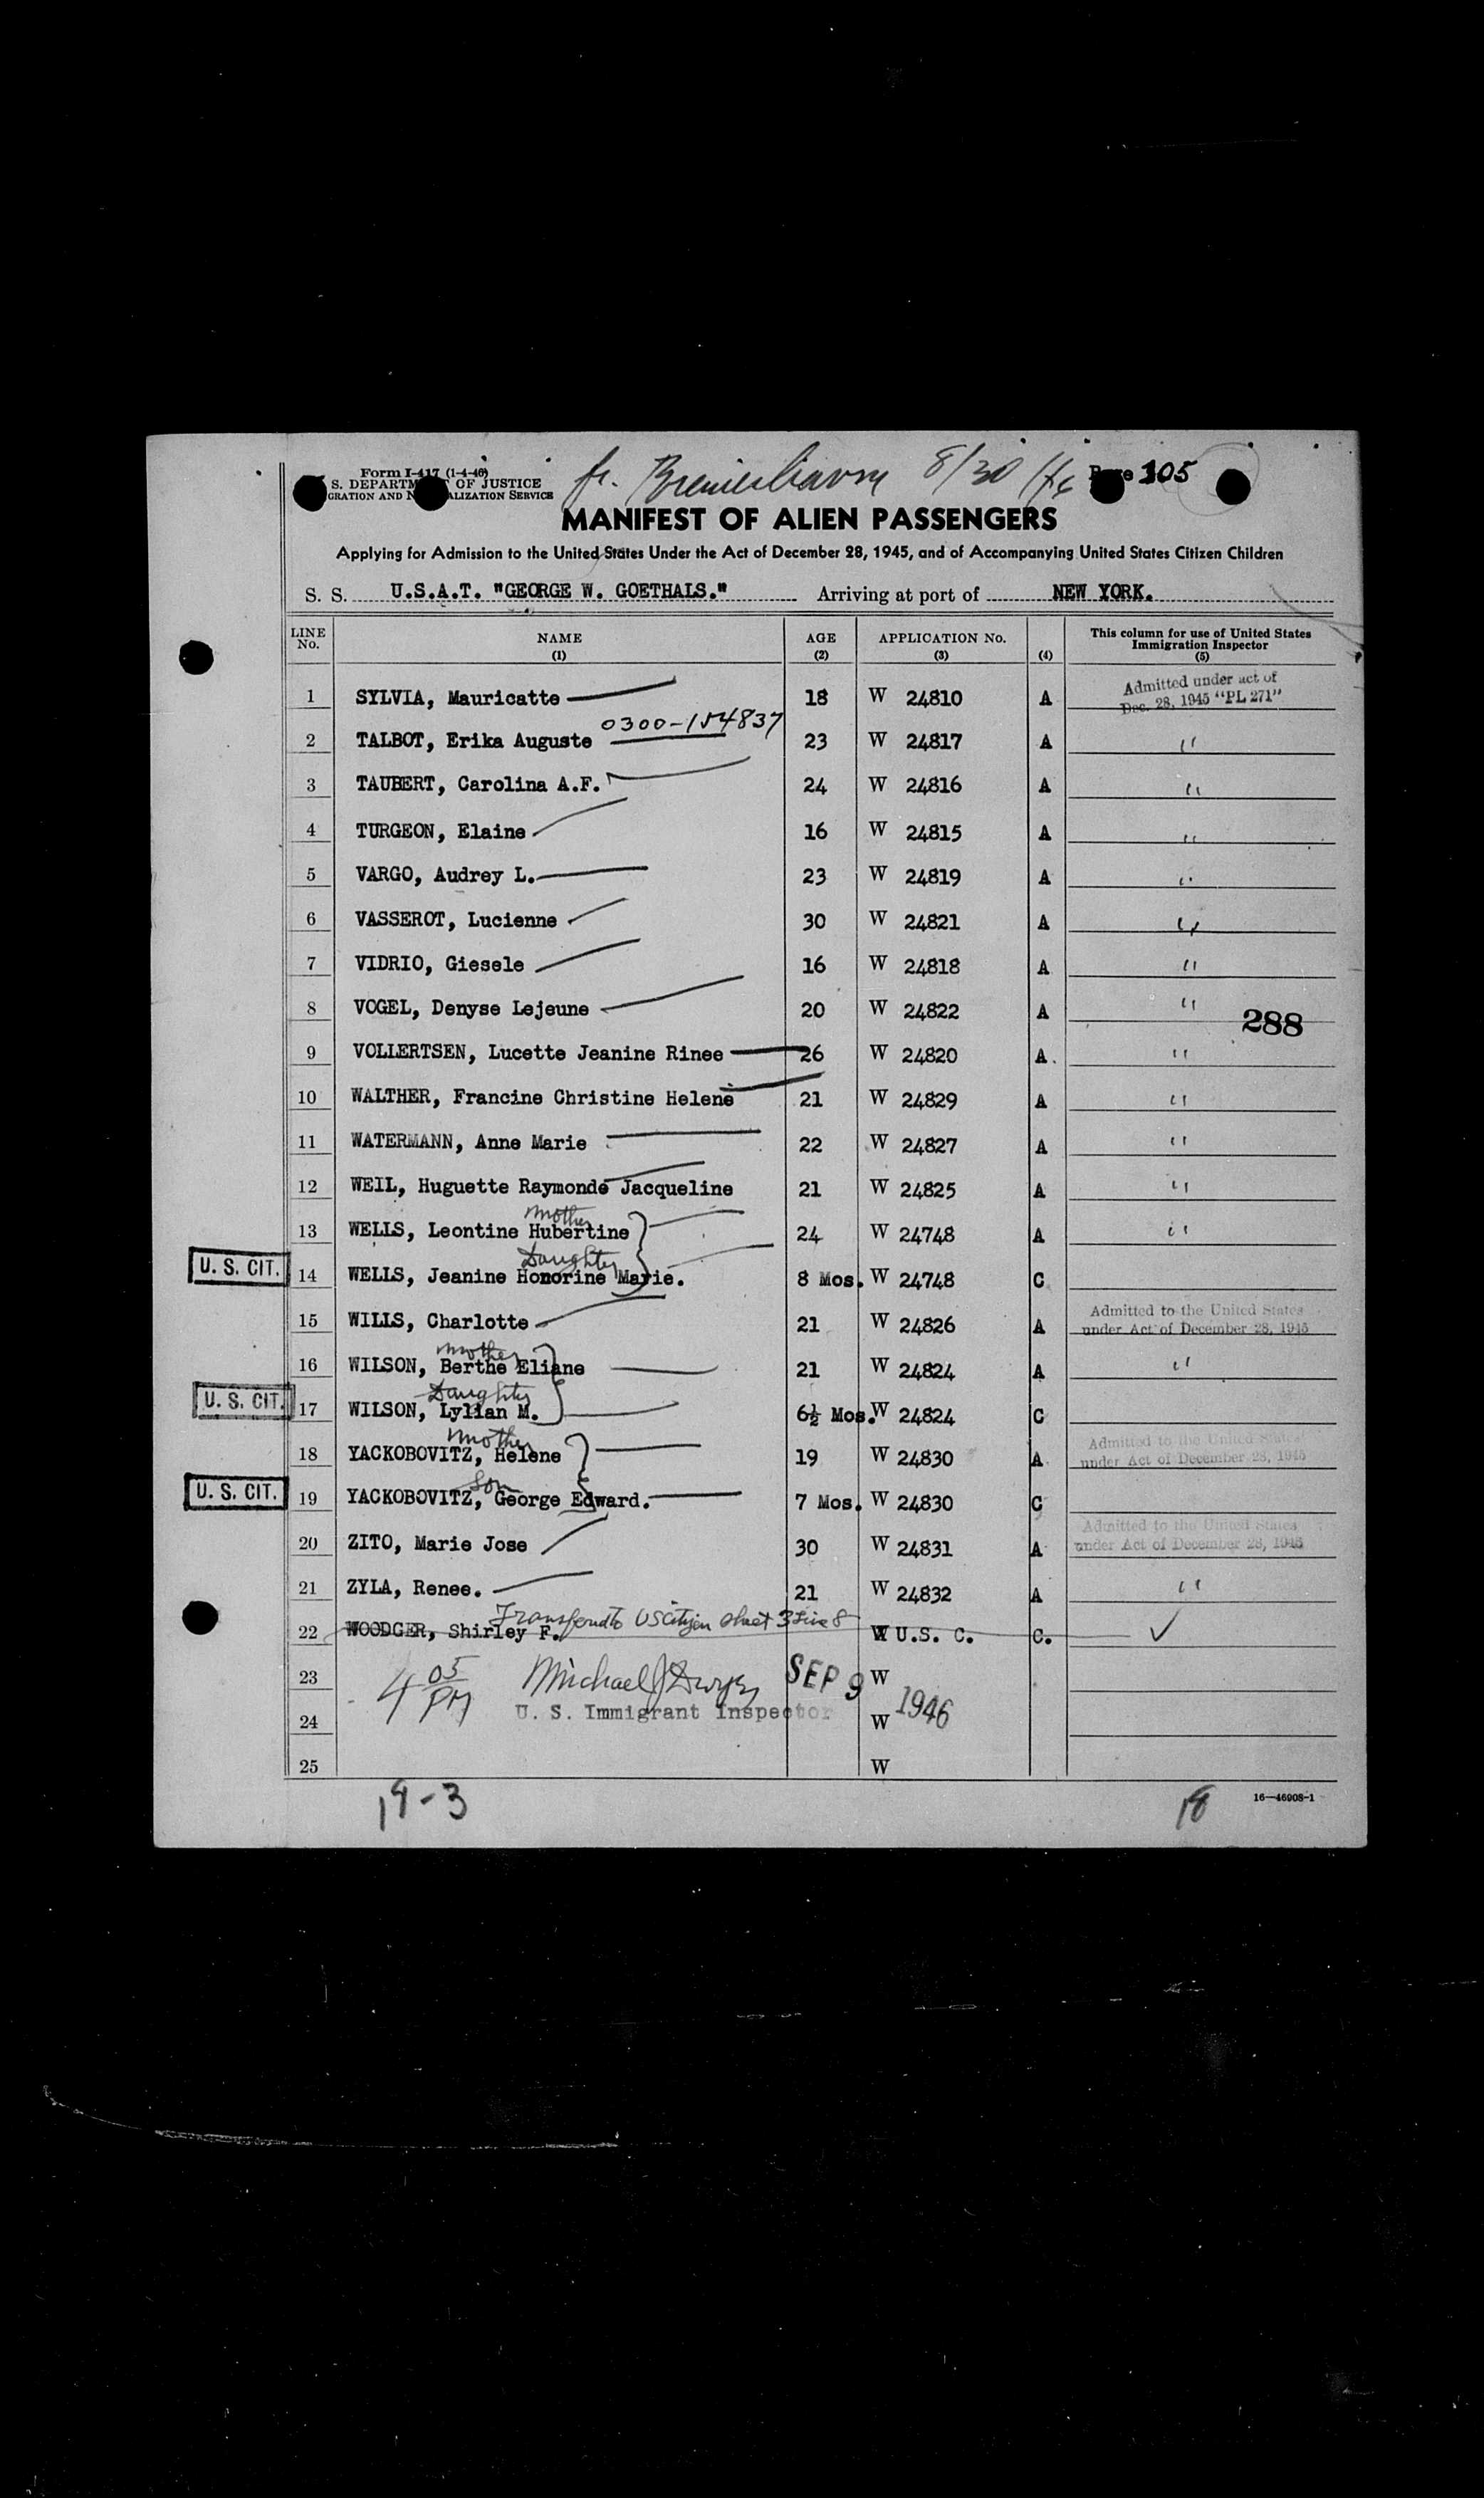 Form I-417 (1-4-46)
S. DEPARTM OF JUSTICE
GRATION AND N ALIZATION SERVICE
fr. Bremerhaven 8/30/46
Page 105
MANIFEST OF ALIEN PASSENGERS
Applying for Admission to the United States Under the Act of December 28, 1945, and of Accompanying United States Citizen Children
S. S. U.S.A.T. "GEORGE W. GOETHALS." Arriving at port of NEW YORK.
LINE No. NAME (1) AGE (2) APPLICATION No. (3) (4) This column for use of United States Immigration Inspector (5)
1 SYLVIA, Mauricatte 18 W 24810 A Admitted under act of Dec. 28, 1945 "PL 271"
0300-154837
2 TALBOT, Erika Auguste 23 W 24817 A "
3 TAUBERT, Carolina A.F. 24 W 24816 A "
4 TURGEON, Elaine 16 W 24815 A "
5 VARGO, Audrey L. 23 W 24819 A "
6 VASSEROT, Lucienne 30 W 24821 A "
7 VIDRIO, Giesele 16 W 24818 A "
8 VOGEL, Denyse Lejeune 20 W 24822 A "
288
9 VOLLERTSEN, Lucette Jeanine Rinee 26 W 24820 A. "
10 WALTHER, Francine Christine Helene 21 W 24829 A "
11 WATERMANN, Anne Marie 22 W 24827 A "
12 WEIL, Huguette Raymonde Jacqueline 21 W 24825 A "
mother
13 WELLS, Leontine Hubertine 24 W 24748 A "
Daughter
U. S. CIT. 14 WELLS, Jeanine Honorine Marie. 8 Mos. W 24748 C
15 WILLS, Charlotte 21 W 24826 A Admitted to the United States under Act of December 28, 1945
mother
16 WILSON, Berthe Eliane 21 W 24824 A "
Daughter
U. S. CIT. 17 WILSON, Lylian M. 6½ Mos. W 24824 C
mother
18 YACKOBOVITZ, Helene 19 W 24830 A Admitted to the United States under Act of December 28, 1945
Son
U. S. CIT. 19 YACKOBOVITZ, George Edward. 7 Mos. W 24830 C
20 ZITO, Marie Jose 30 W 24831 A Admitted to the United States under Act of December 28, 1945
21 ZYLA, Renee. 21 W 24832 A "
Transferred to US Citizen sheet 3 Line 8
22 WOODGER, Shirley F. W U.S. C. C. ✓
23 4 05 PM Michael J Dwyer SEP 9 W
24 U. S. Immigrant Inspector W 1946
25 W
19-3
18
16—46908-1